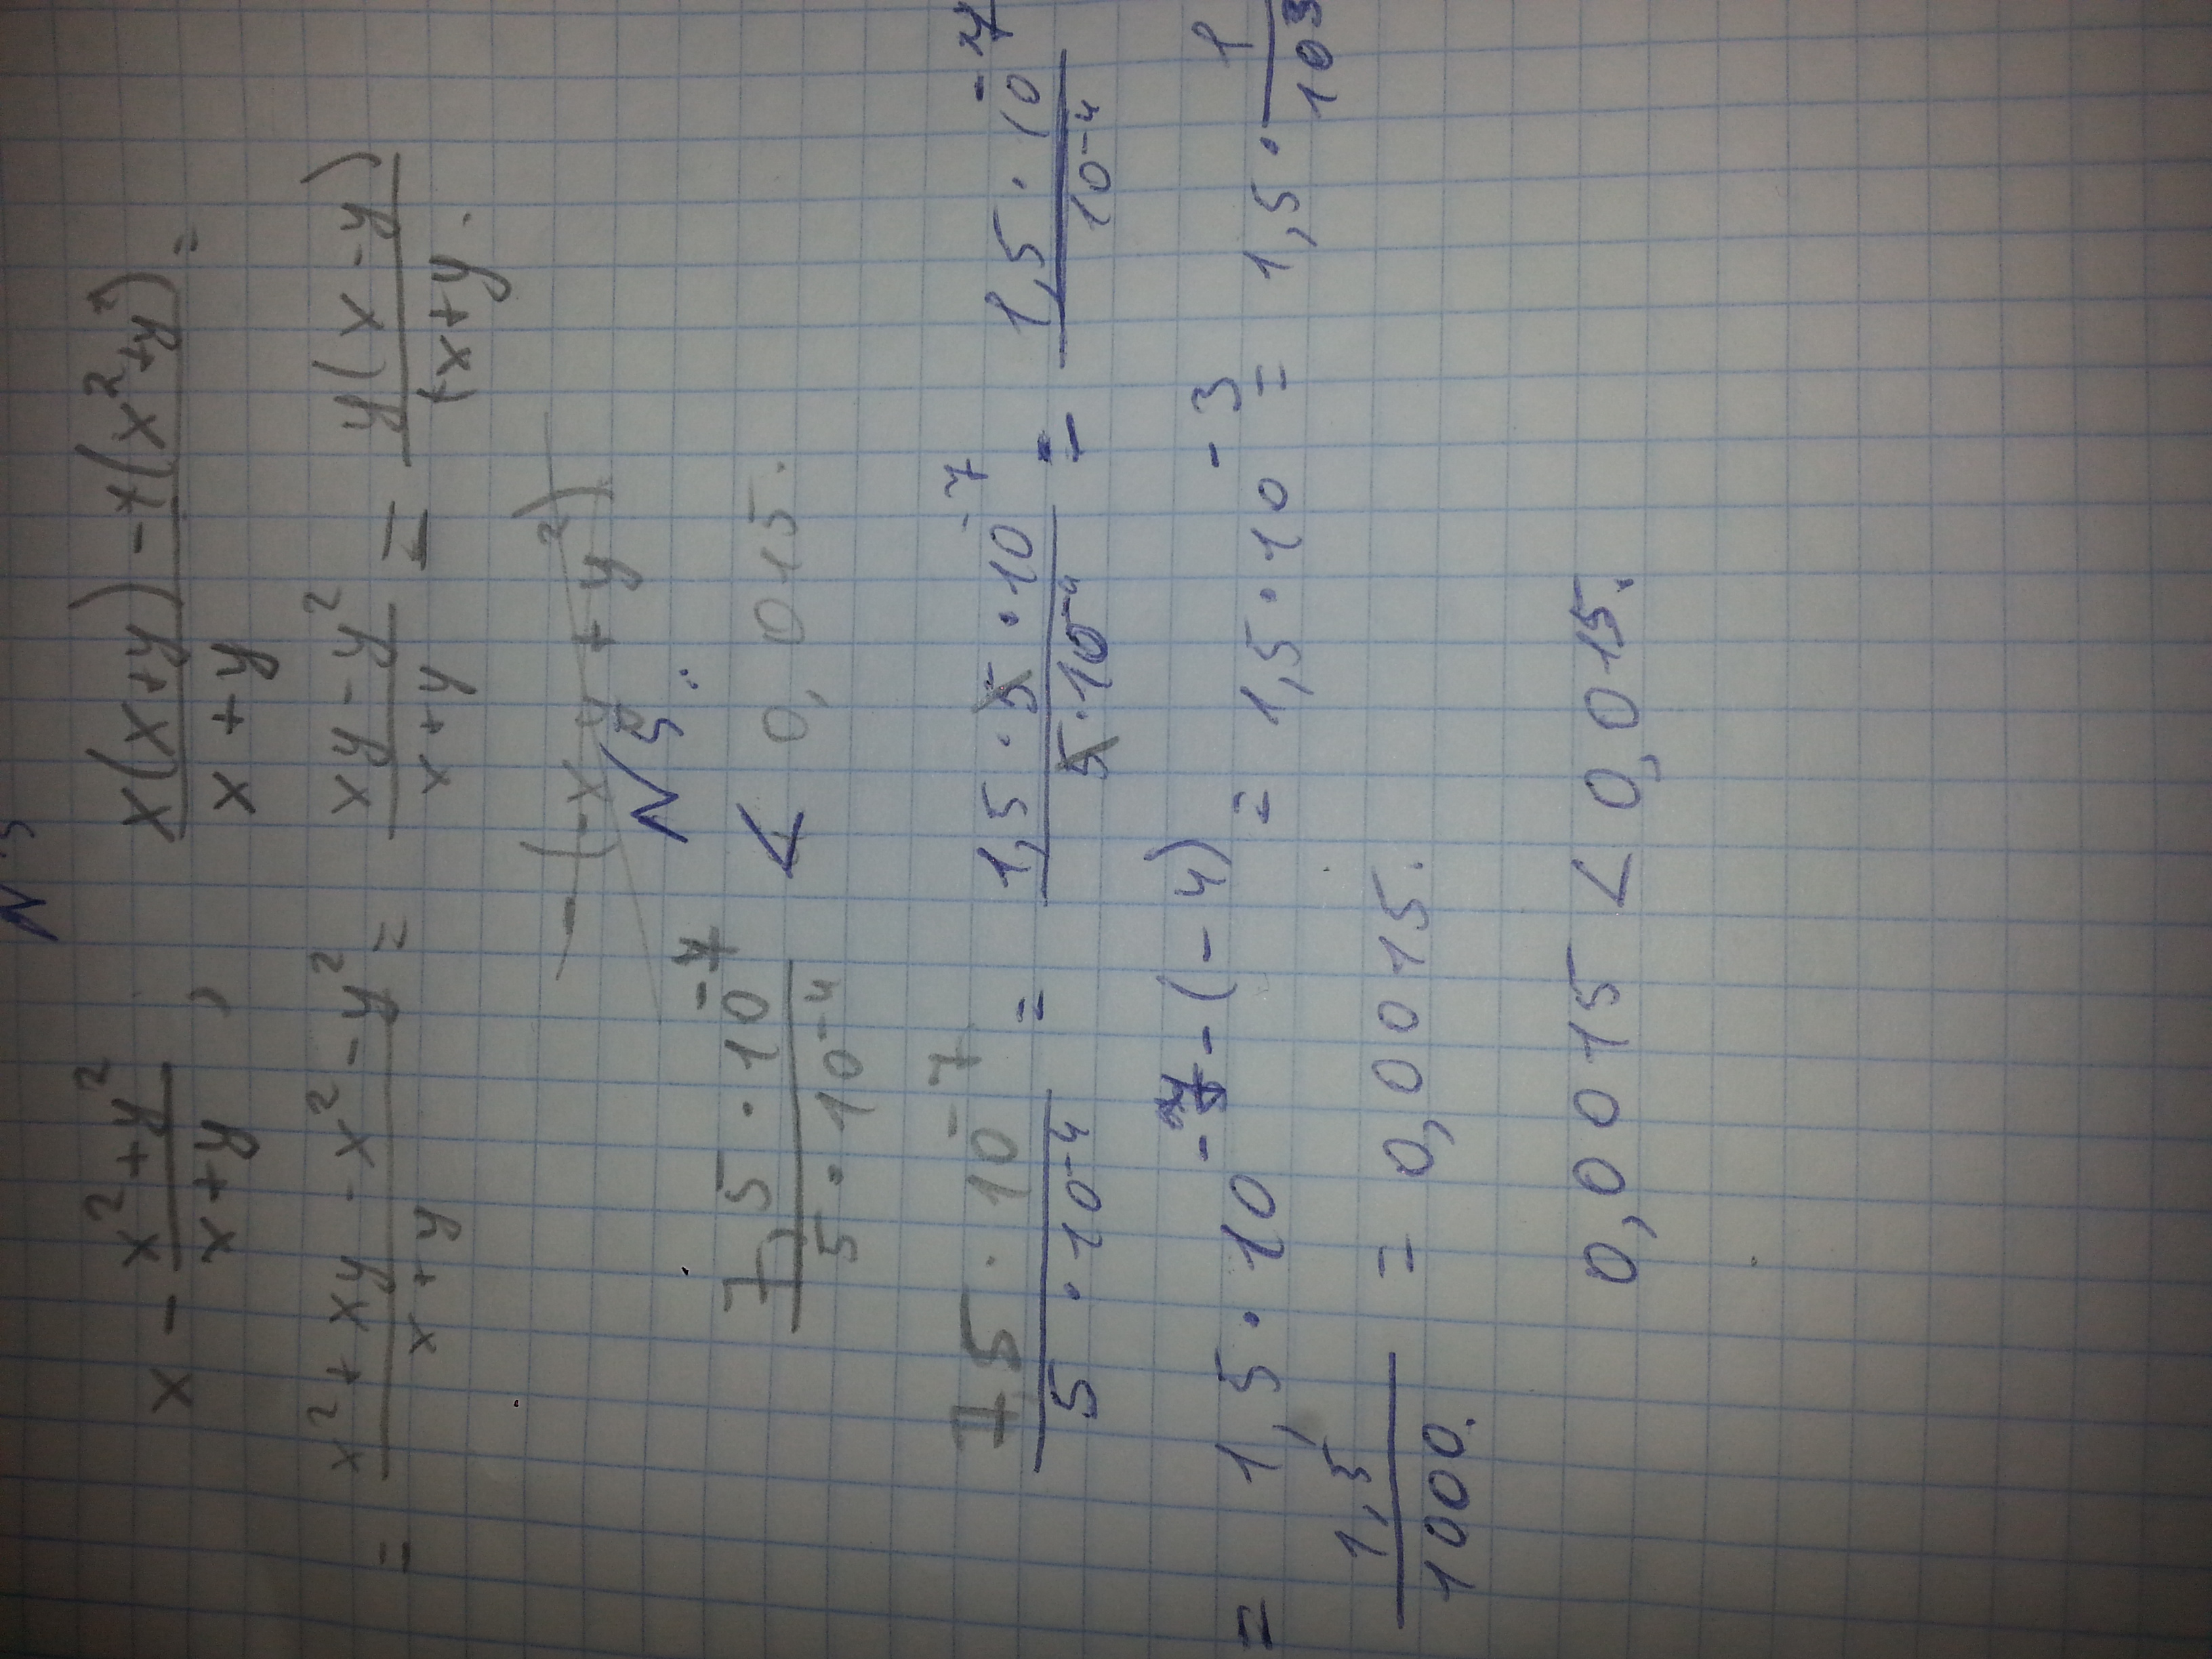 N 3
x - (x² + y²)/(x + y) , x(x + y) - 1(x² + y²)/(x + y) =
= (x² + xy - x² - y²)/(x + y) = (xy - y²)/(x + y) = y(x - y)/(x + y.
- (-xy + y²)
N 5.
7,5 · 10⁻⁷/5 · 10⁻⁴ < 0,015.
7,5 · 10⁻⁷/5 · 10⁻⁴ = 1,5 · 5 · 10⁻⁷/5 · 10⁻⁴ = 1,5 · 10⁻⁷/10⁻⁴
= 1,5 · 10⁻⁷⁻⁽⁻⁴⁾ = 1,5 · 10⁻³ = 1,5 · 1/10³
1,5/1000. = 0,0015.
0,0015 < 0,015.